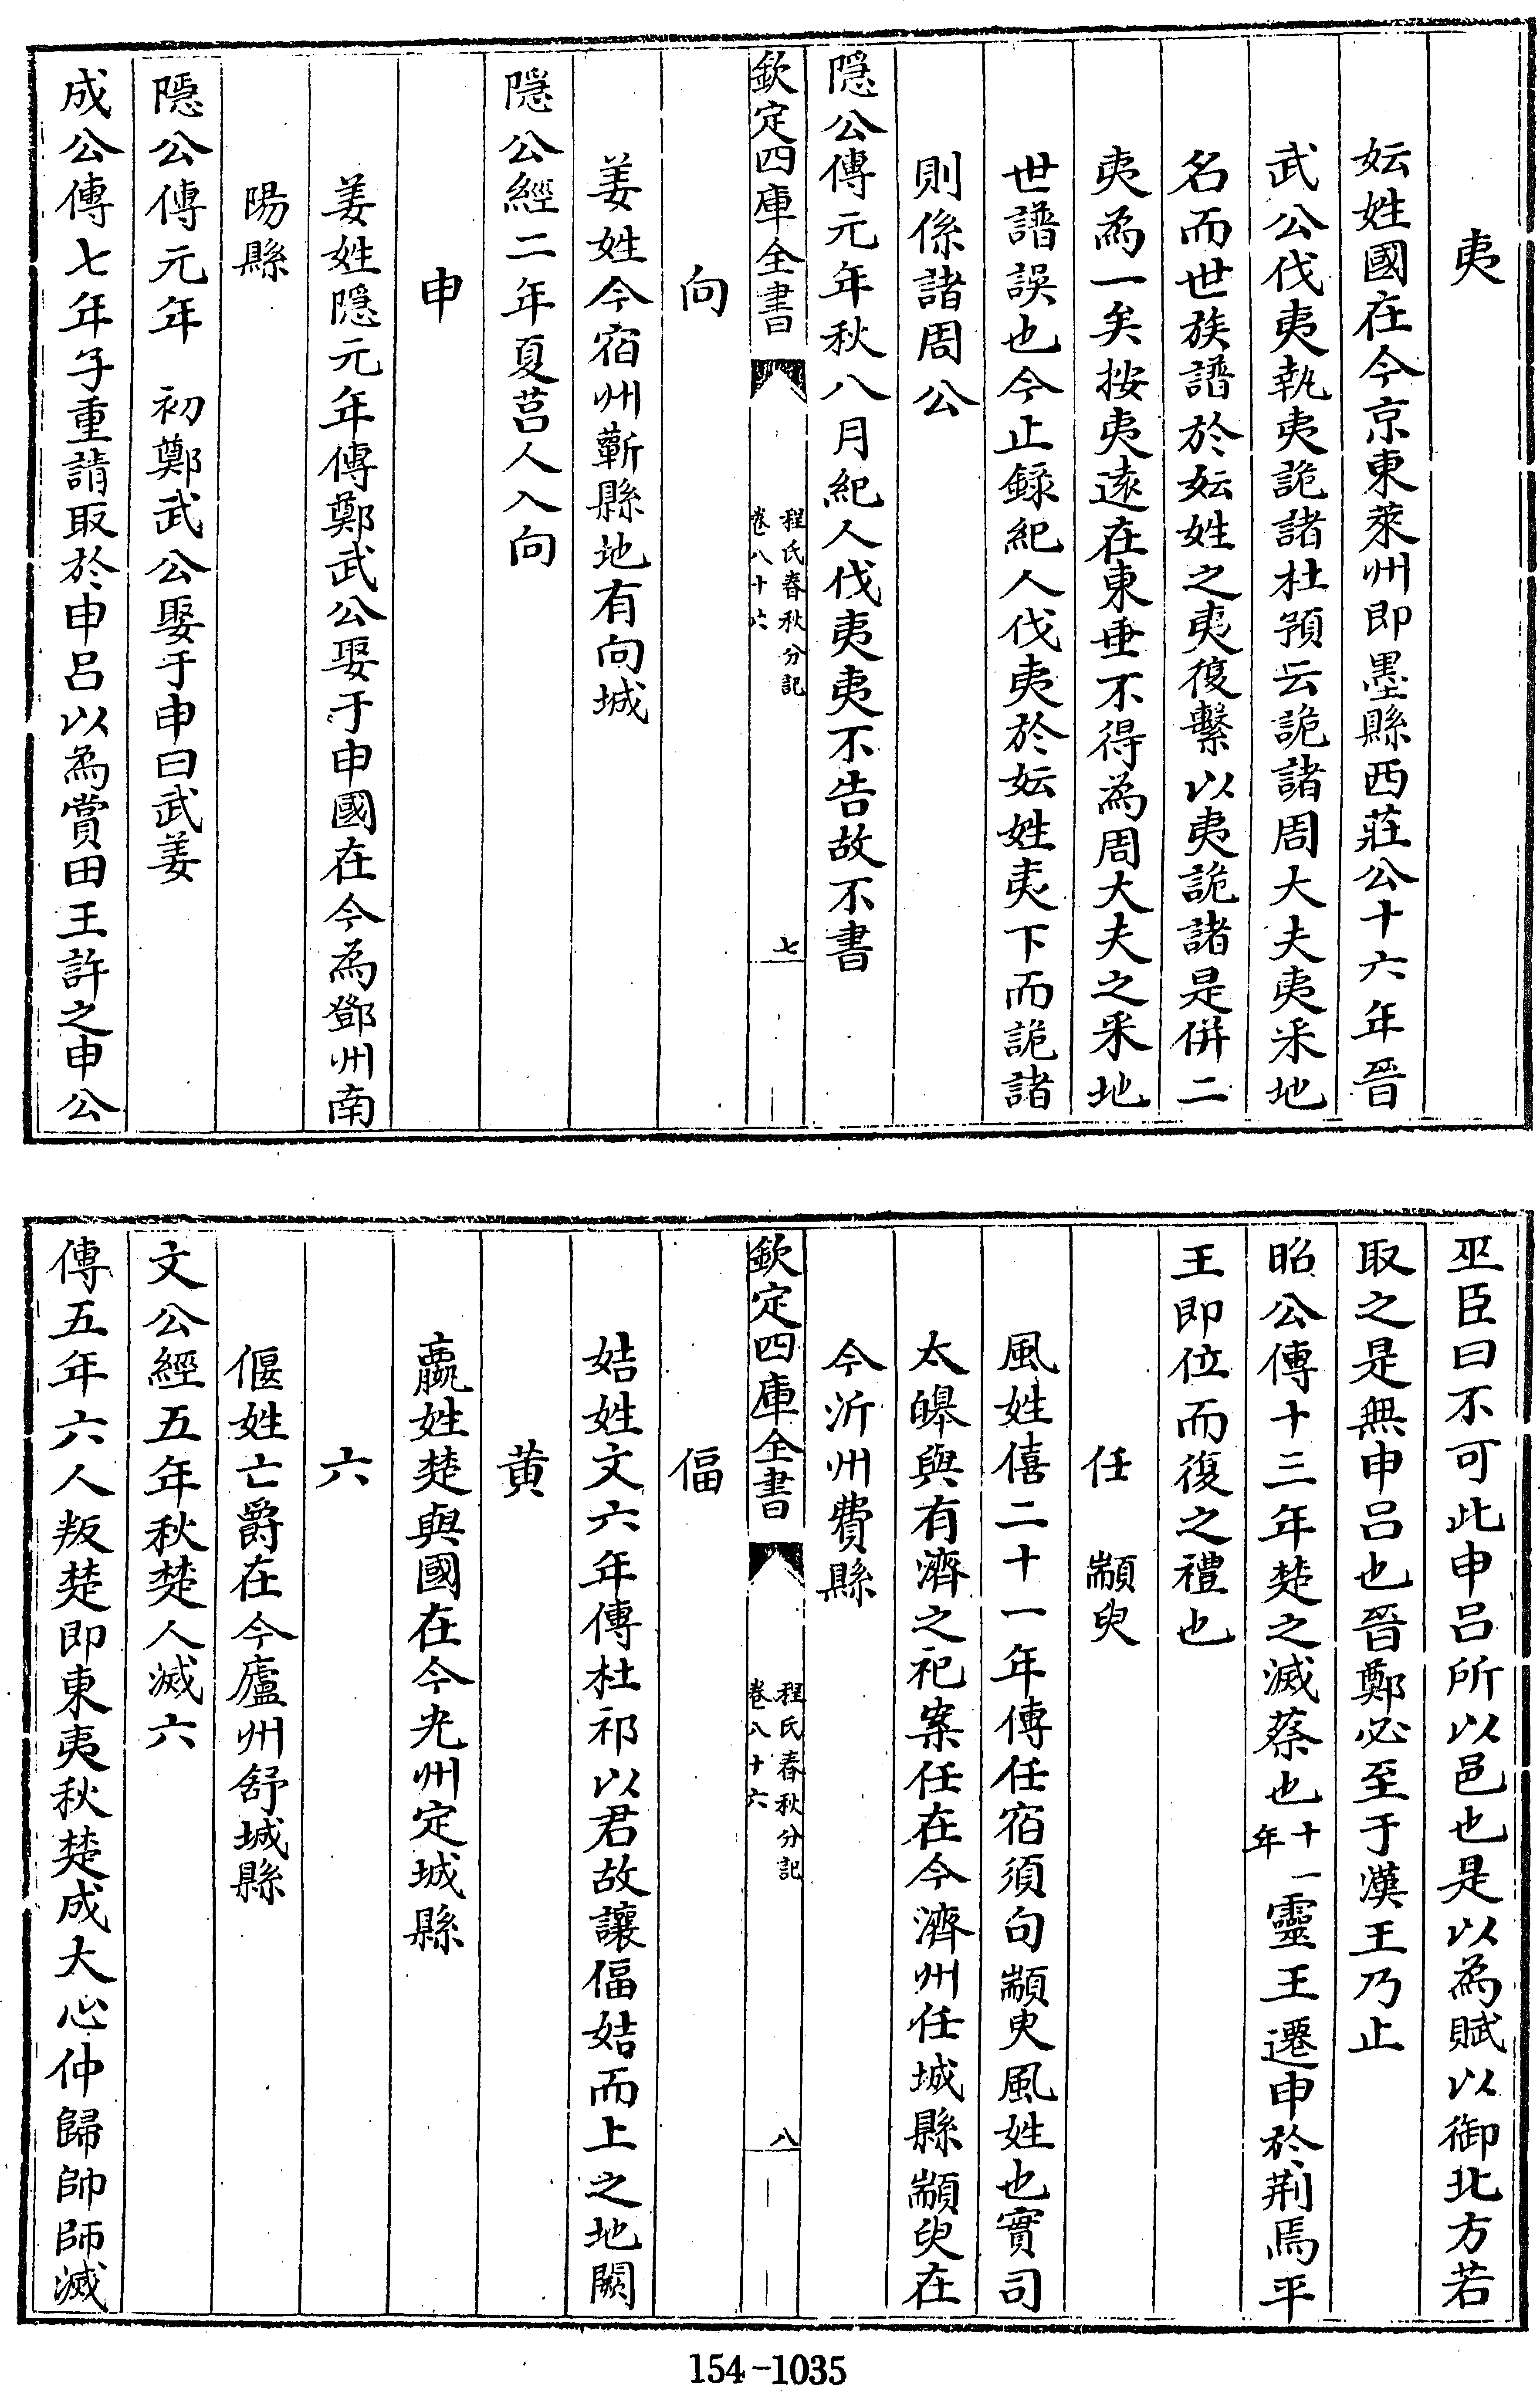 夷
妘姓國在今京東萊州即墨縣西莊公十六年晉
武公伐夷執夷詭諸杜預云詭諸周大夫夷采地
名而世族譜於妘姓之夷復繫以夷詭諸是併二
夷為一矣按夷遠在東垂不得為周大夫之采地
世譜誤也今止錄紀人伐夷於妘姓夷下而詭諸
則係諸周公
隱公傳元年秋八月紀人伐夷夷不告故不書
欽定四庫全書
程氏春秋分記
卷八十六
七
向
姜姓今宿州蘄縣地有向城
隱公經二年夏莒人入向
申
姜姓隱元年傳鄭武公娶于申國在今為鄧州南
陽縣
隱公傳元年　初鄭武公娶于申曰武姜
成公傳七年子重請取於申呂以為賞田王許之申公
巫臣曰不可此申呂所以邑也是以為賦以御北方若
取之是無申呂也晉鄭必至于漢王乃止
昭公傳十三年楚之滅蔡也十一年靈王遷申於荆焉平
王即位而復之禮也
任　顓臾
風姓僖二十一年傳任宿須句顓臾風姓也實司
太皞與有濟之祀案任在今濟州任城縣顓臾在
今沂州費縣
欽定四庫全書
程氏春秋分記
卷八十六
八
偪
姞姓文六年傳杜祁以君故讓偪姞而上之地闕
黄
嬴姓楚與國在今光州定城縣
六
偃姓亡爵在今廬州舒城縣
文公經五年秋楚人滅六
傳五年六人叛楚即東夷秋楚成大心仲歸帥師滅
154-1035